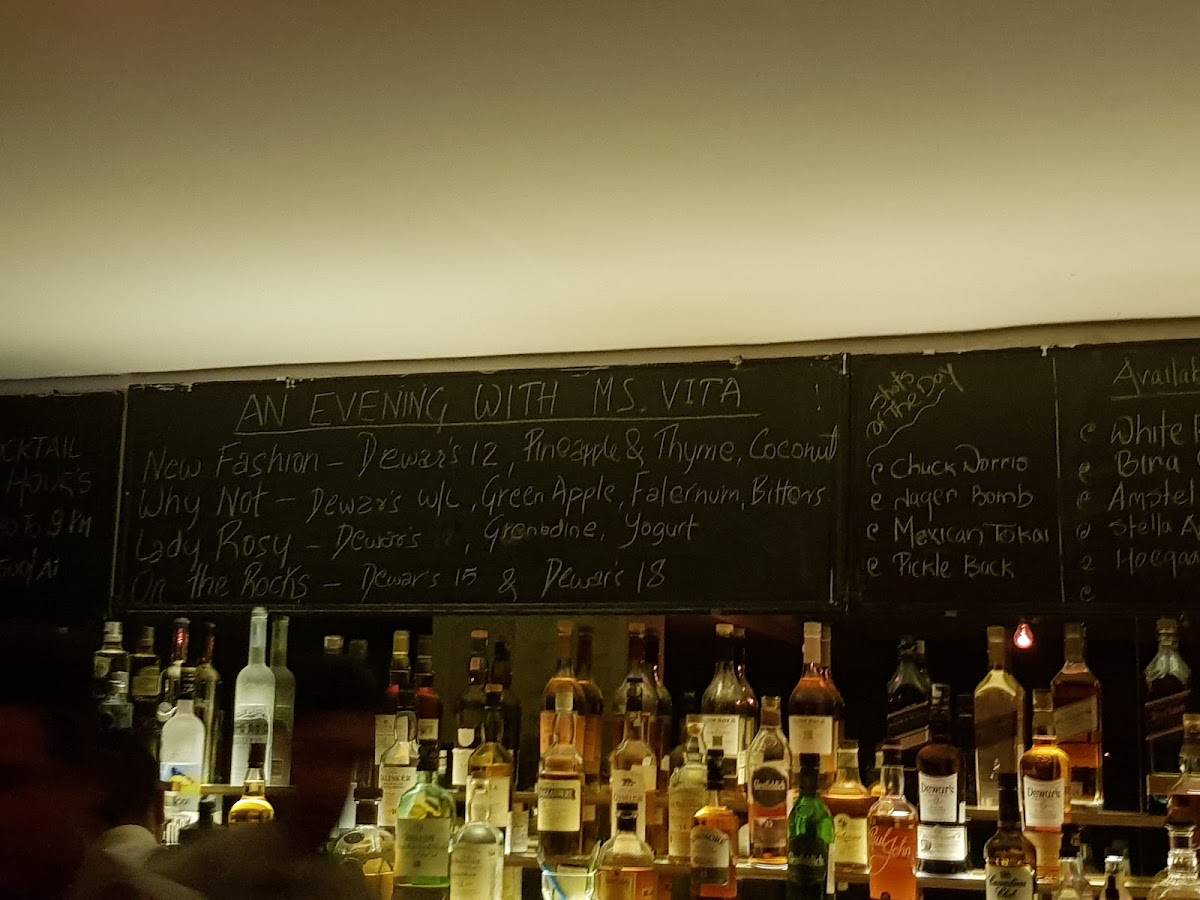 OCKTAIL
9 PM
AN EVENING WITH MS. VITA !
New Fashion - Dewar's 12, Pineapple & Thyme, Coconut
Why Not - Dewar's W/L, Green Apple, Falernum, Bittons
Lady Rosy - Dewar's , Grenadine, Yogurt
On the Rocks - Dewar's 15 & Dewar's 18
Shots
of the Day
Chuck Norris
Jager Bomb
Mexican Tokai
Pickle Back
Availab
White
Bira
Amstel
Stella A
Hoegaa
TALISKER
Dewar's
Dewar's
Paul John